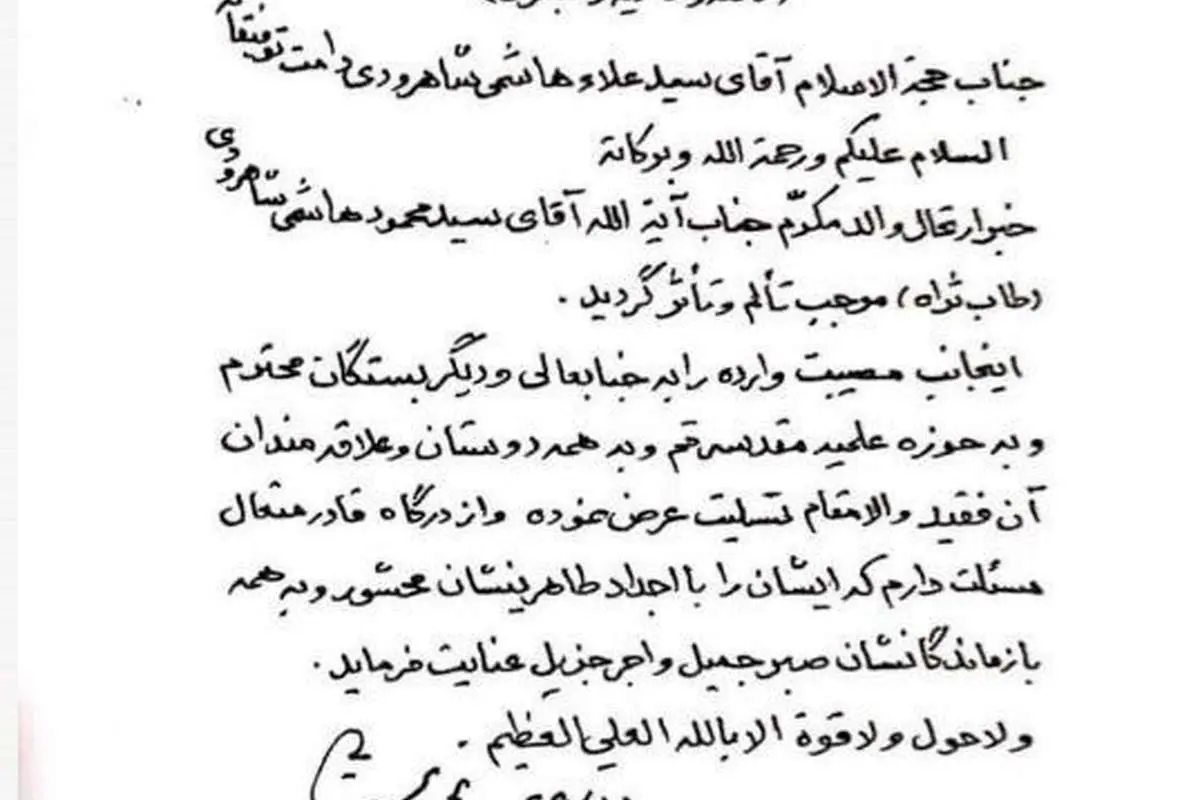 جناب حجة الاسلام آقای سید علاء هاشمی شاهرودی دامت توفیقاته
السلام علیکم ورحمة الله وبرکاته
خبر ارتحال والد مکرّم جناب آیة الله آقای سید محمود هاشمی شاهرودی
(طاب ثراه) موجب تألم و تأثر گردید .
اینجانب مصیبت وارده را به جنابعالی و دیگر بستگان محترم
و به حوزه علمیه مقدسه قم و به همه دوستان و علاقه مندان
آن فقید والامقام تسلیت عرض نموده و از درگاه قادر متعال
مسئلت دارم که ایشان را با اجداد طاهرینشان محشور و به همه
بازماندگانشان صبر جمیل و اجر جزیل عنایت فرماید .
ولا حول ولا قوة الا بالله العلی العظیم .